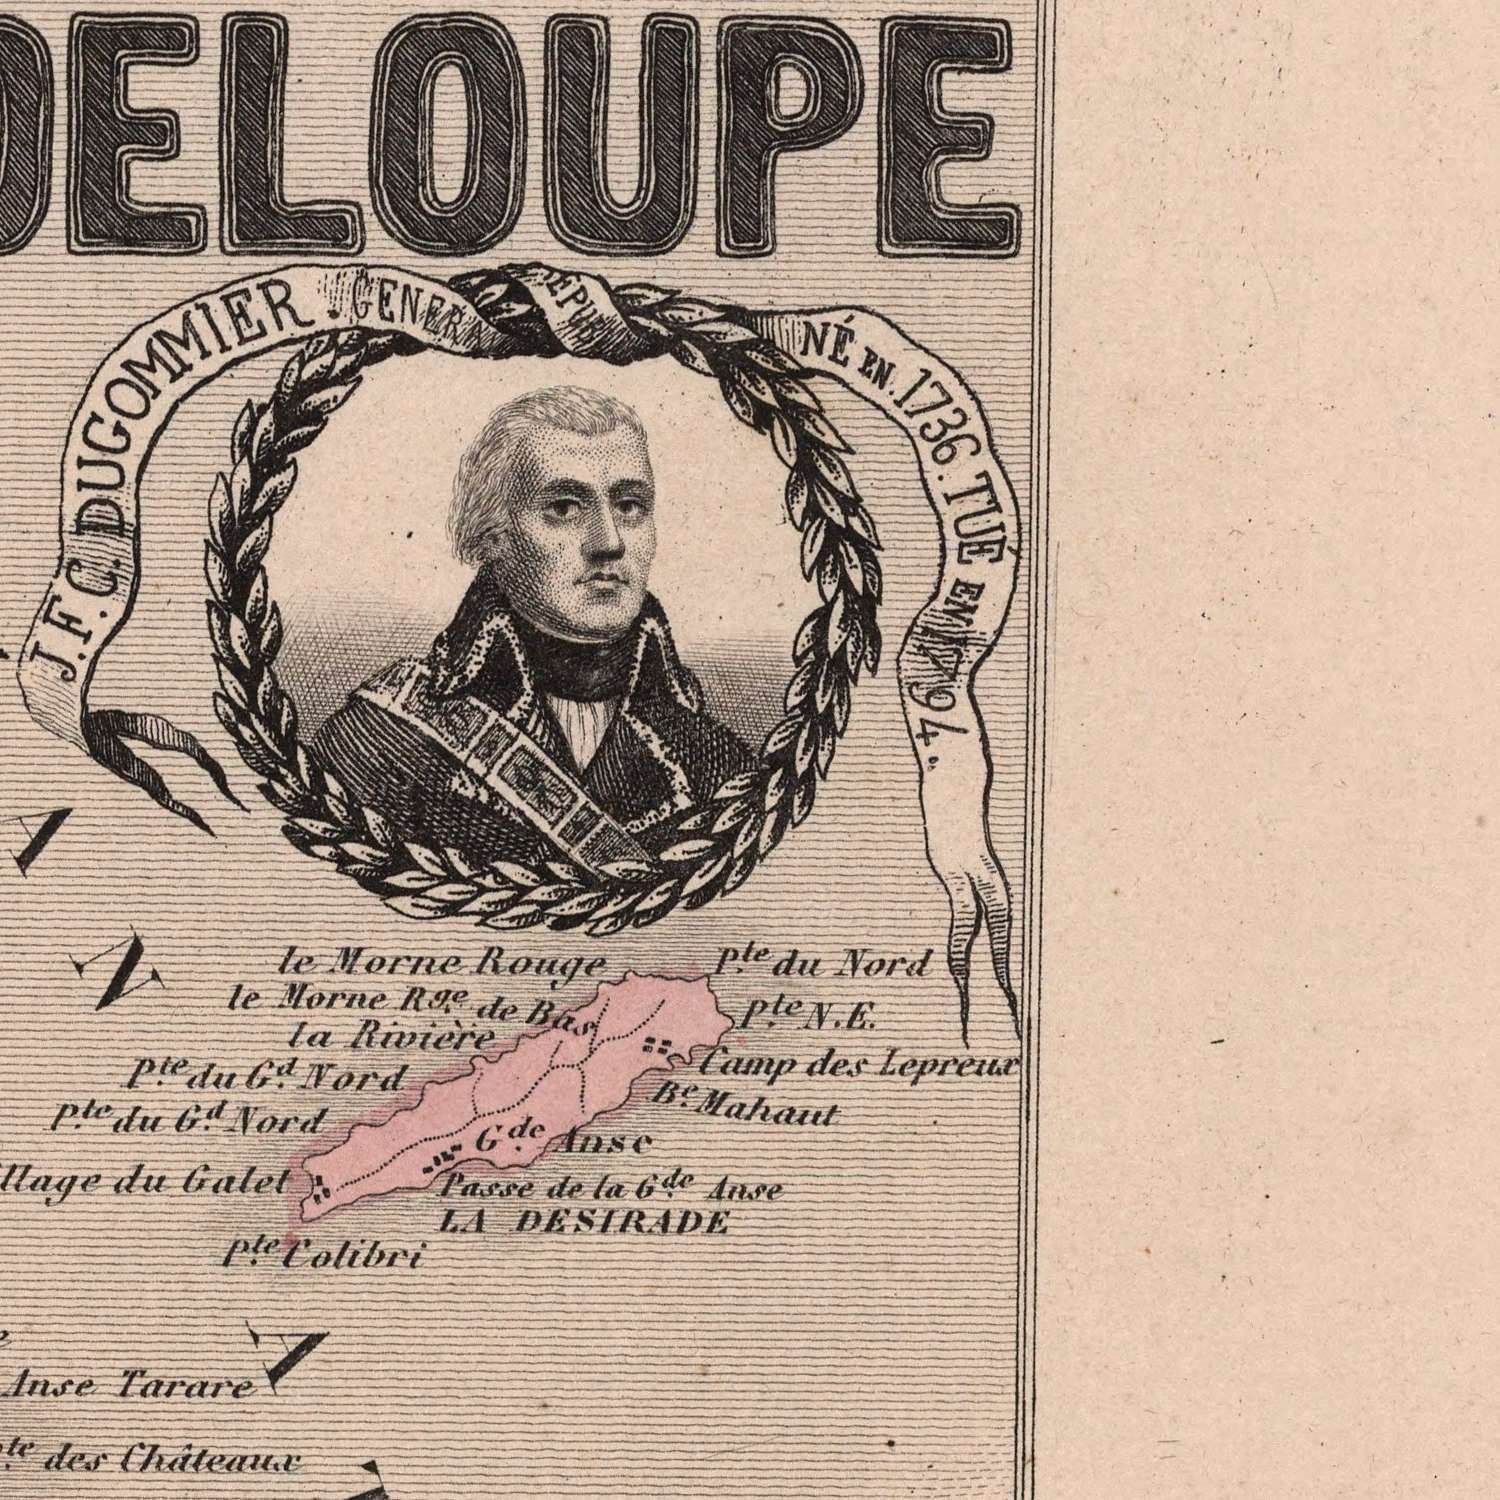 DELOUPE
J. F. C. DUGOMMIER. GENERAL
NÉ EN. 1736. TUÉ EN 1794.
le Morne Rouge
Pte. du Nord
le Morne Rge. de Bas
Pte. N.E.
la Rivière
Camp des Lepreux
Pte. du Gd. Nord
Be. Mahaut
Pte. du Gd. Nord
Gde Anse
Village du Galet
Passe de la Gde Anse
LA DESIRADE
Pte. Colibri
Anse Tarare
Pte des Châteaux